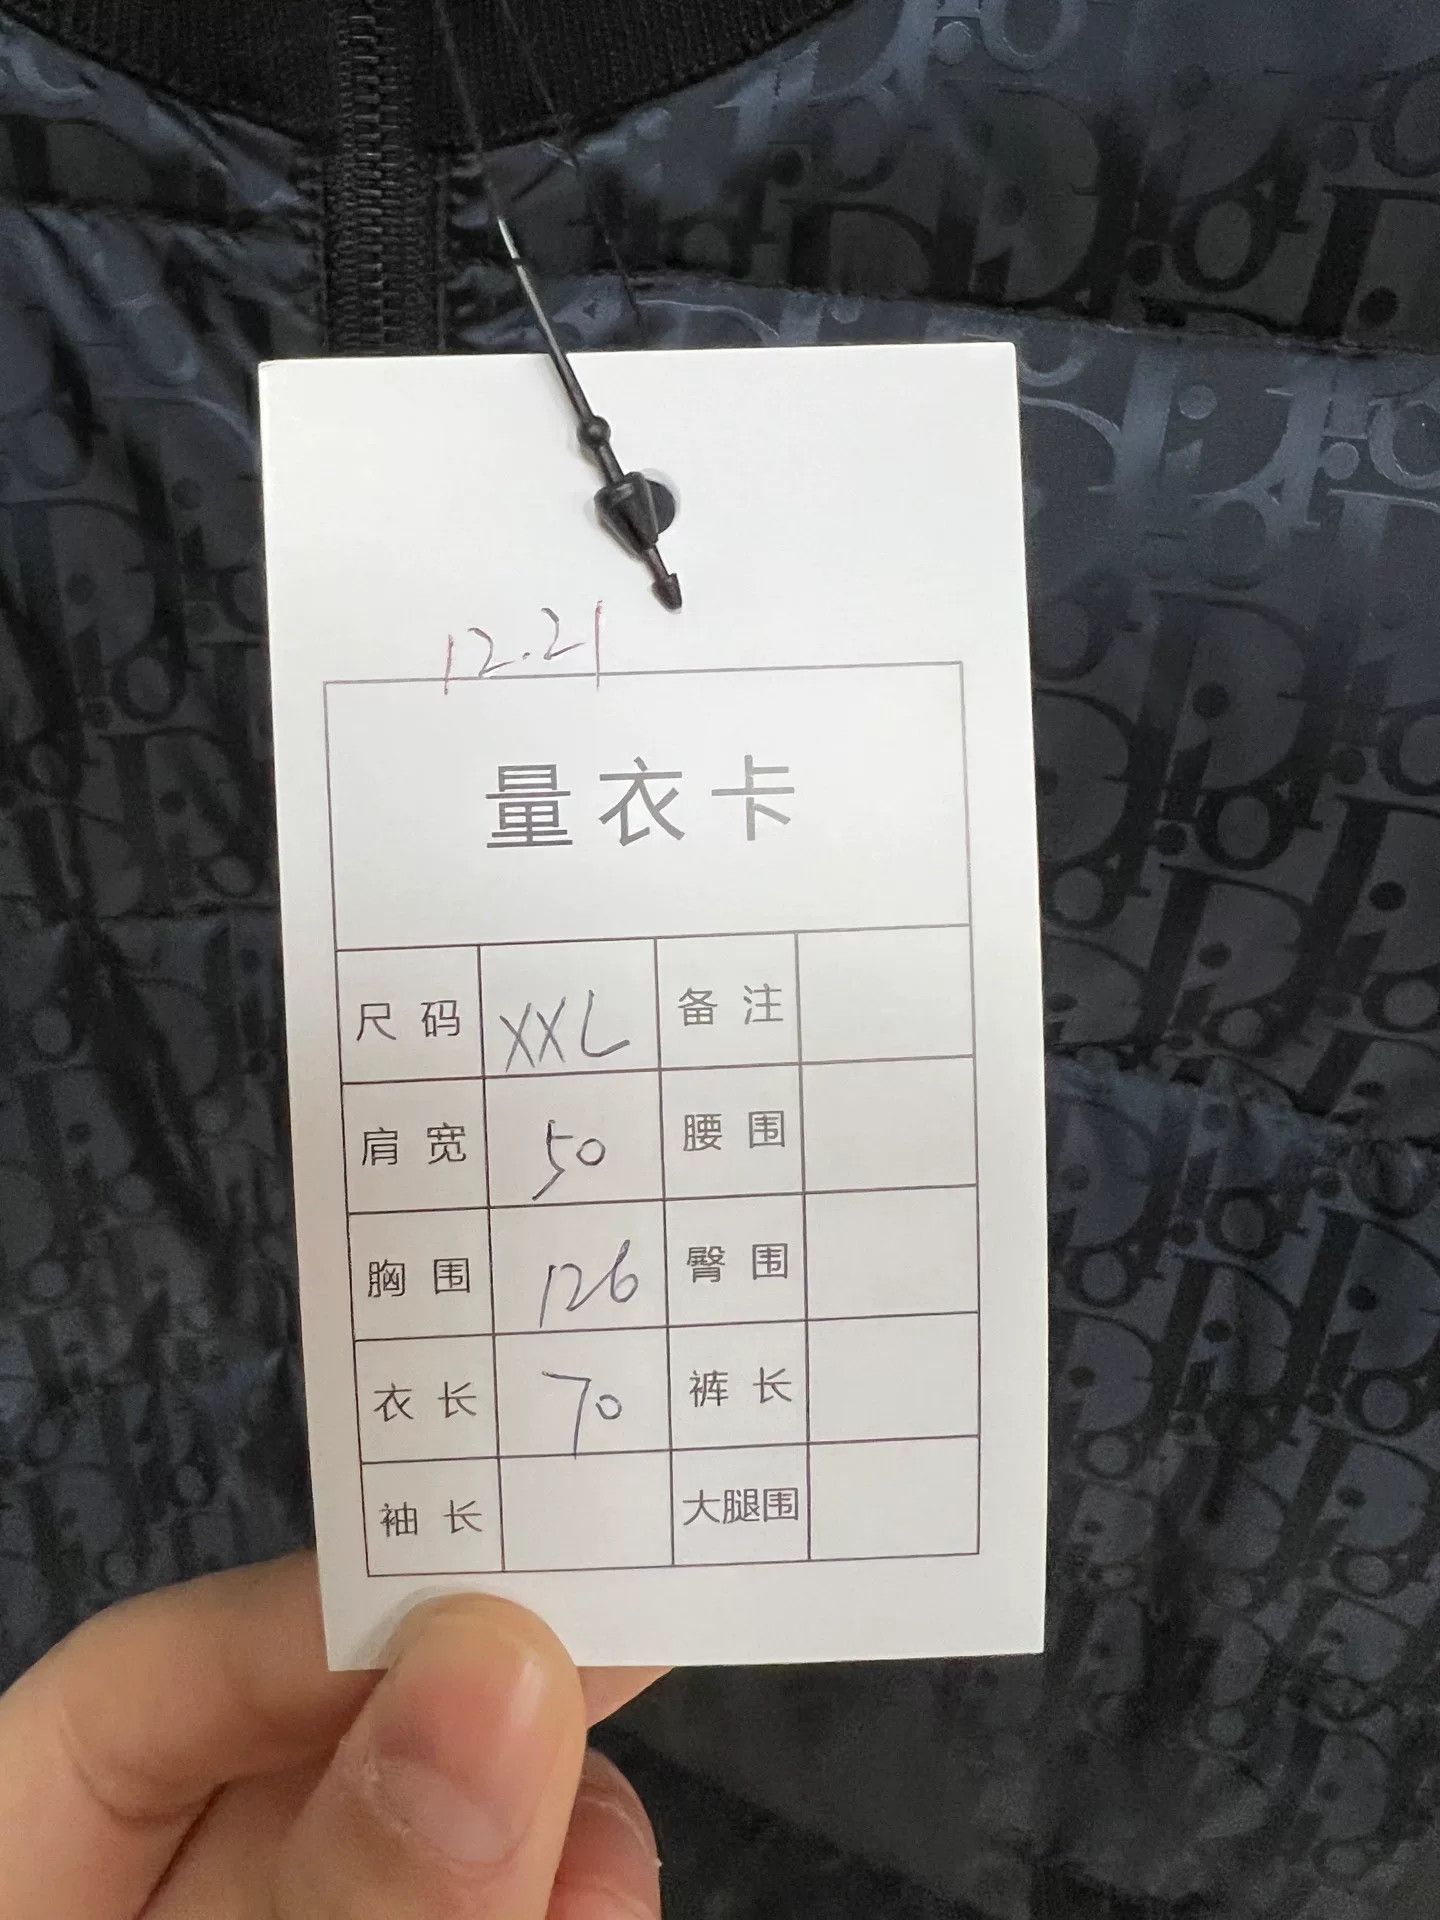 12.21
量衣卡
尺码 XXL 备注
肩宽 50 腰围
胸围 126 臀围
衣长 70 裤长
袖长 大腿围
Dior